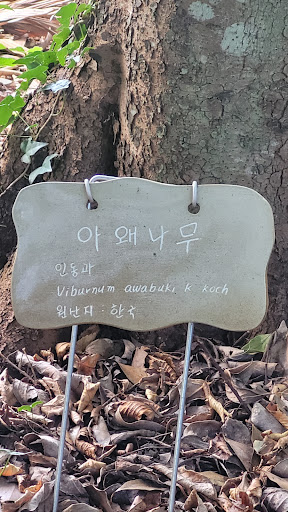 아왜나무
인동과
Viburnum awabuki K koch
원산지 : 한국